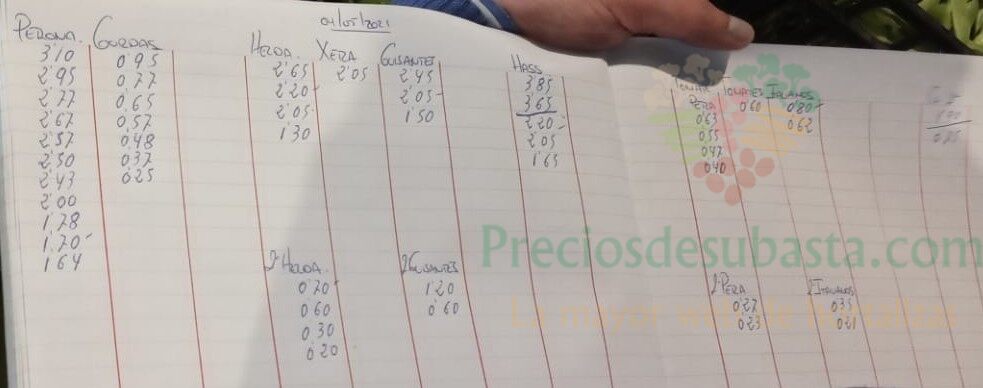 04/05/2021
PERONA. GORDAS HELDA. XERA GUISANTES HASS TOMATE PERA TOMATES ITALIANOS
3'10 0'95 2'65 2'05 2'45 3'85 0'63 0'60 0'80
2'95 0'77 2'20 2'05 3'65 0'55 0'62
2'77 0'65 2'05 1'50 2'20 0'47
2'67 0'57 1'30 2'05 0'40
2'57 0'48 1'65
2'50 0'37
2'43 0'25
2'00
1'78
1'70
1'64
Preciosdesubasta.com
La mayor web de hortalizas
2ª HELDA. 2ª GUISANTES 2ª PERA 2ª ITALIANOS
0'70 1'20 0'27 0'35
0'60 0'60 0'23 0'21
0'30
0'20